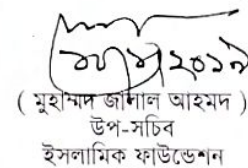 ২০১৯
( মুহাম্মাদ জালাল আহমদ )
উপ-সচিব
ইসলামিক ফাউন্ডেশন